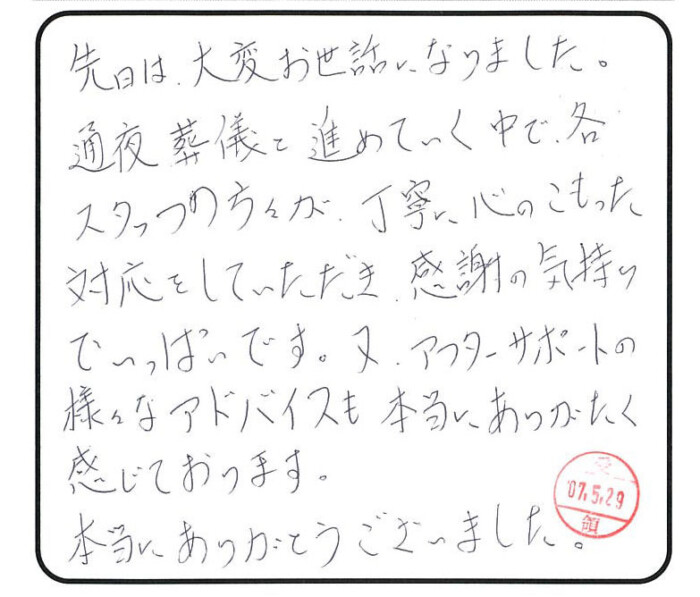 先日は、大変お世話になりました。
通夜、葬儀と進めていく中で、各
スタッフの方々が、丁寧に心のこもった
対応をしていただき、感謝の気持ち
でいっぱいです。又、アフターサポートの
様々なアドバイスも本当にありがたく
感じております。
本当にありがとうございました。
受
'07.5.29
領